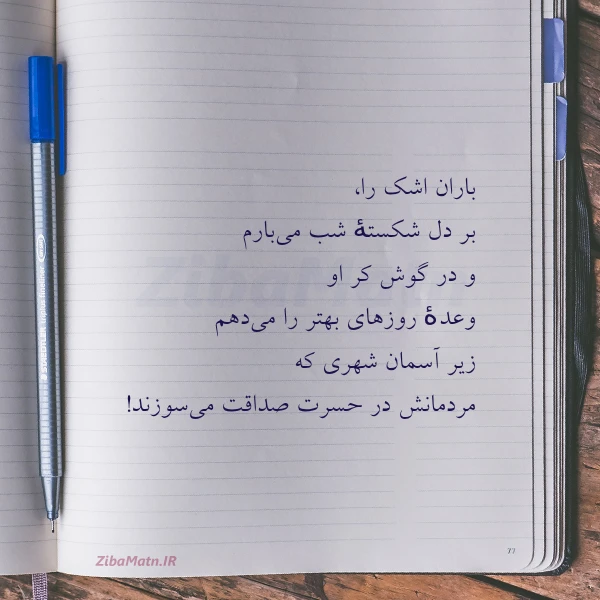 باران اشک را،
بر دل شکستهٔ شب می‌بارم
و در گوش کر او
وعدهٔ روزهای بهتر را می‌دهم
زیر آسمان شهری که
مردمانش در حسرت صداقت می‌سوزند!
ZibaMatn.IR
77